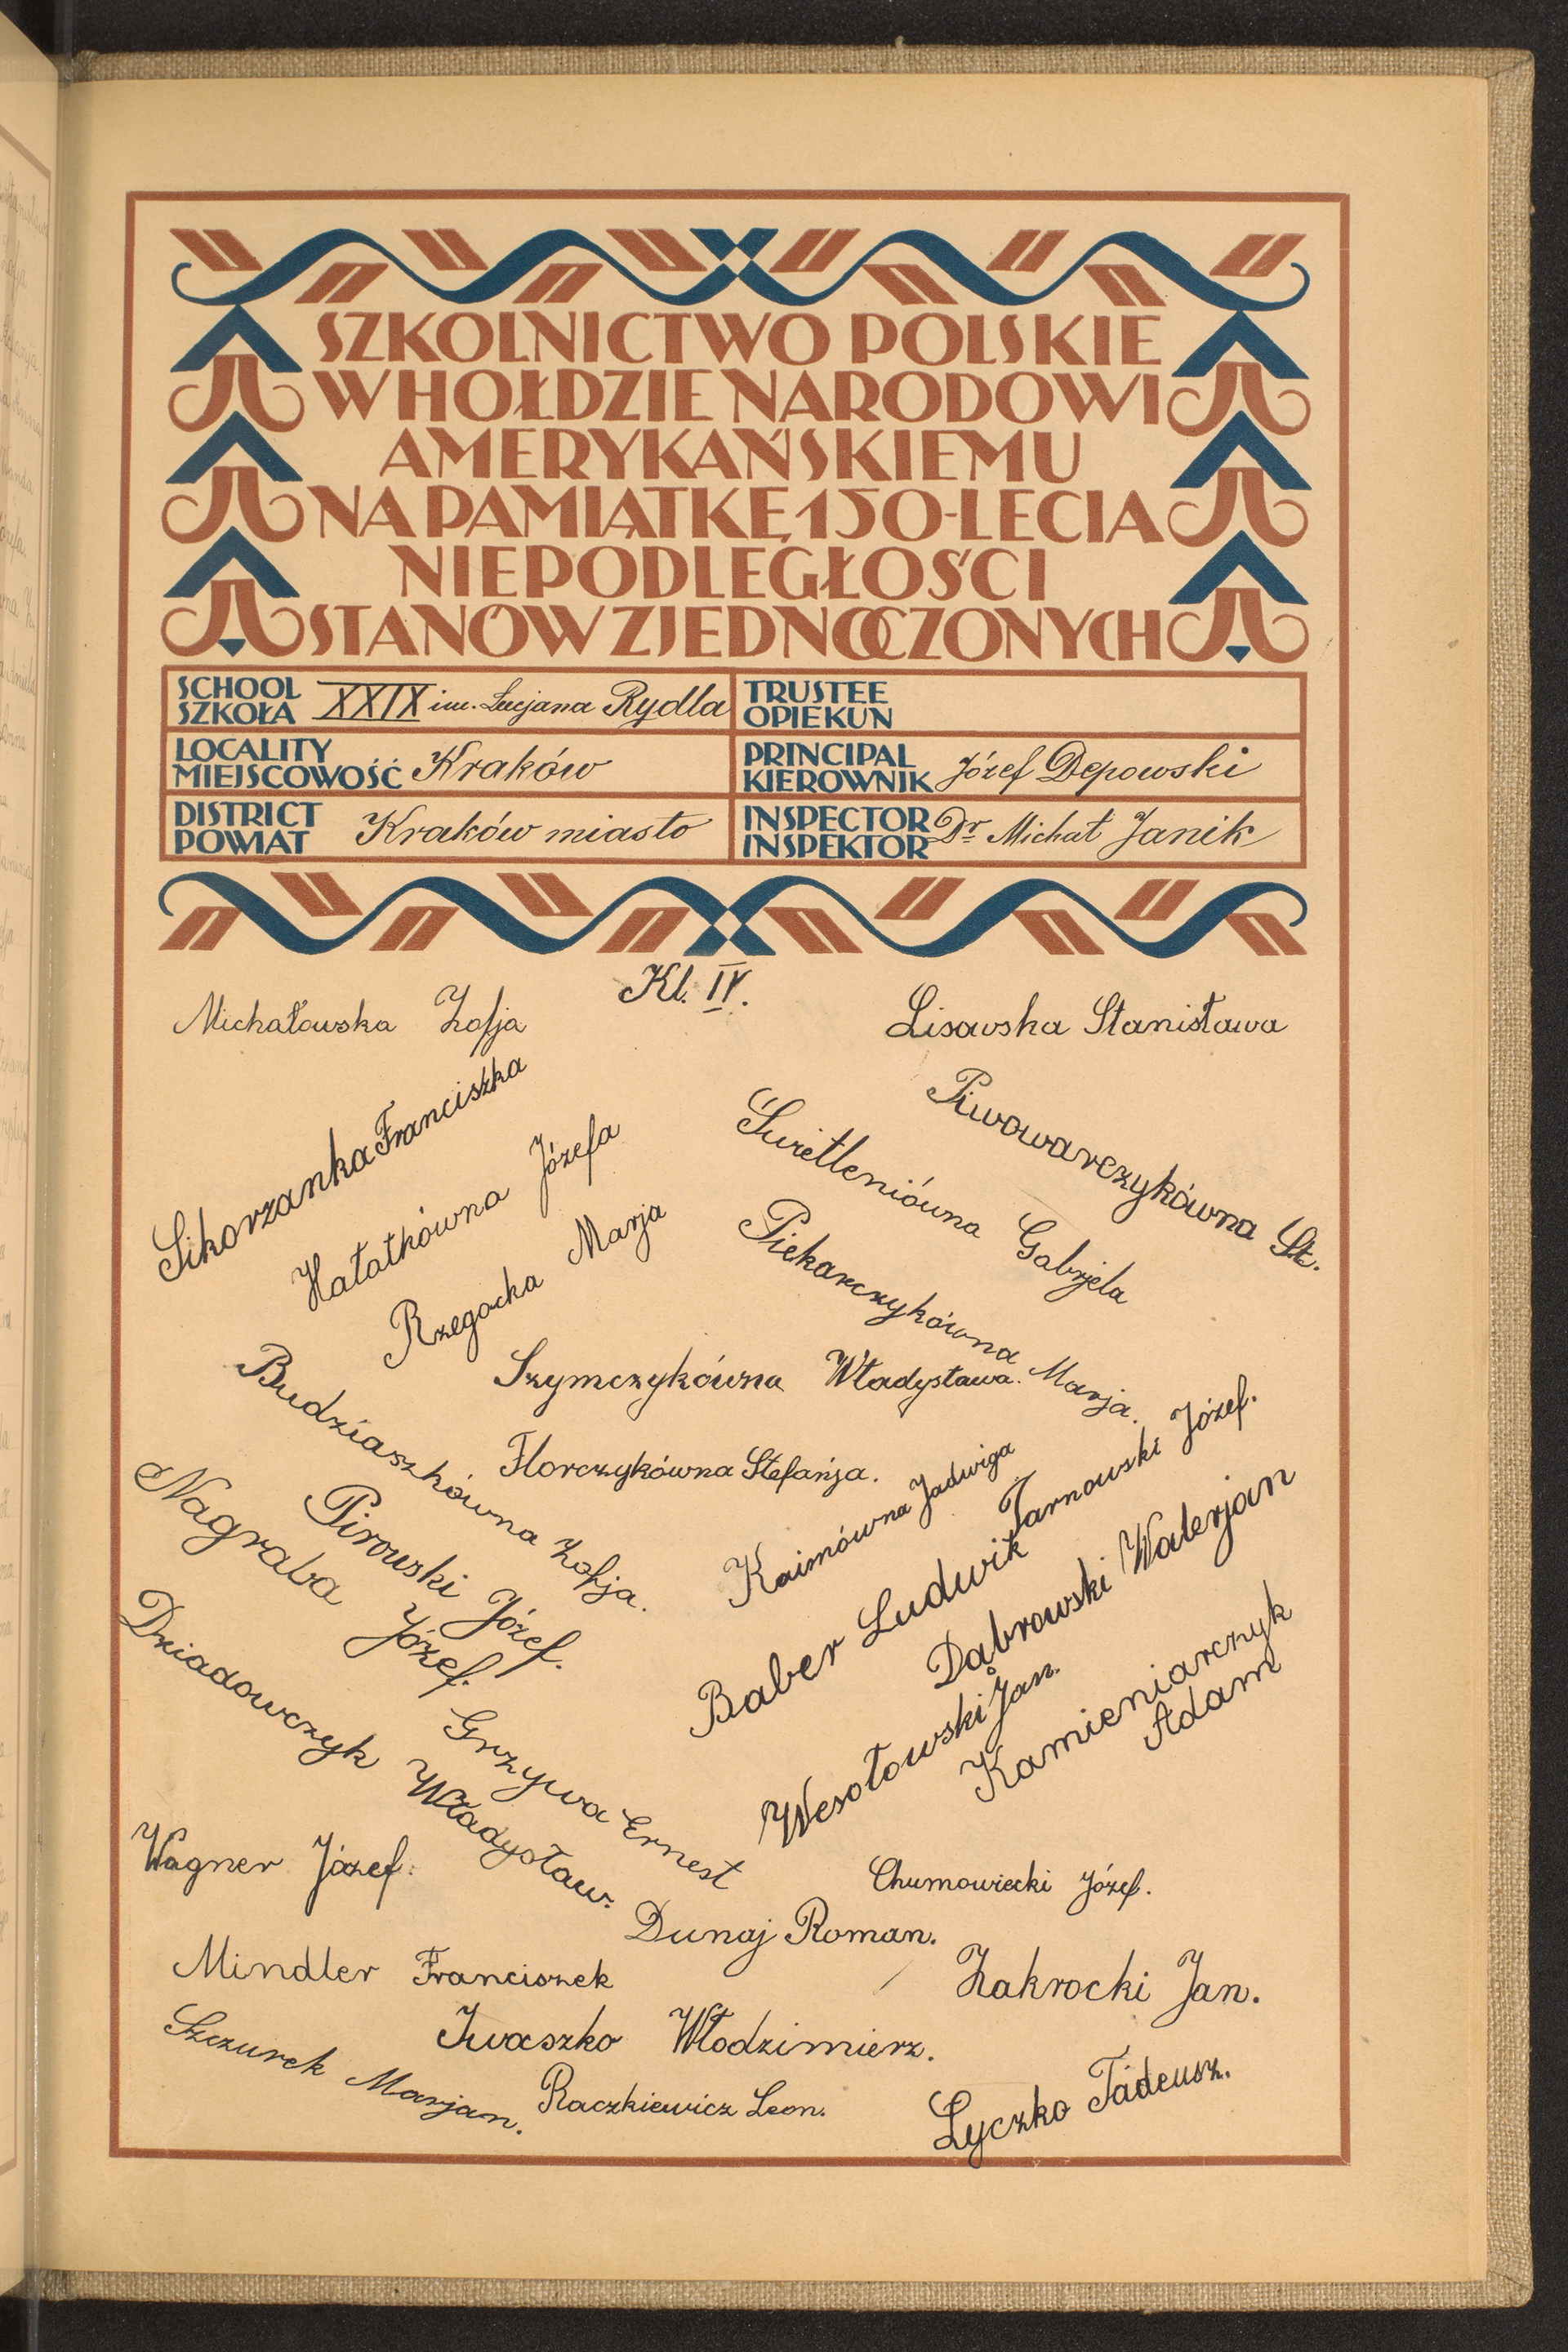 SZKOLNICTWO POLSKIE
W HOŁDZIE NARODOWI
AMERYKAŃSKIEMU
NA PAMIĄTKĘ 150-LECIA
NIEPODLEGŁOŚCI
STANÓW ZJEDNOCZONYCH
SCHOOL
SZKOŁA XXIX im. Lucjana Rydla
TRUSTEE
OPIEKUN
LOCALITY
MIEJSCOWOŚĆ Kraków
PRINCIPAL
KIEROWNIK Józef Depowski
DISTRICT
POWIAT Kraków miasto
INSPECTOR
INSPEKTOR Dr Michał Janik
Kl. IV.
Michałowska Zofja
Lisowska Stanisława
Sikorzanka Franciszka
Piwowarczykówna St.
Hałatkówna Józefa
Świetleniówna Gabrjela
Rzegocka Marja
Piekarczykówna Marja.
Szymczykówna Władysława.
Budziaszkówna Zofja.
Florczykówna Stefanja.
Kaimówna Jadwiga
Tarnowski Józef.
Nagraba Józef.
Pirowski Józef.
Baber Ludwik
Dąbrowski Walerjan
Dziadowczyk Władysław.
Grzywa Ernest
Wesołowski Jan.
Kamieniarczyk
Adam
Wagner Józef.
Chumowiecki Józef.
Dunaj Roman.
Mindler Franciszek
Zakrocki Jan.
Iwaszko Włodzimierz.
Szczurek Marjan.
Raczkiewicz Leon.
Łyczko Tadeusz.